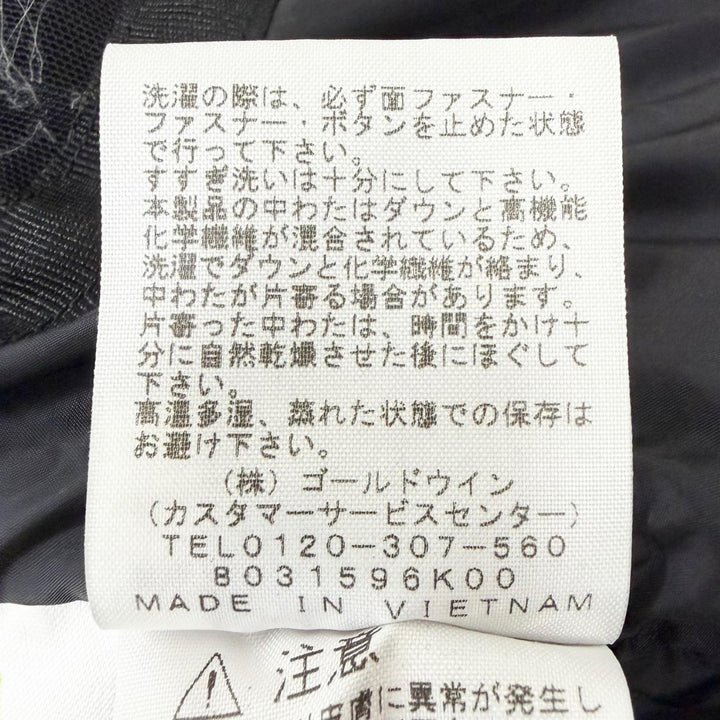 洗濯の際は、必ず面ファスナー・
ファスナー・ボタンを止めた状態
で行って下さい。
すすぎ洗いは十分にして下さい。
本製品の中わたはダウンと高機能
化学繊維が混合されているため、
洗濯でダウンと化学繊維が絡まり、
中わたが片寄る場合があります。
片寄った中わたは、時間をかけ十
分に自然乾燥させた後にほぐして
下さい。
高温多湿、蒸れた状態での保存は
お避け下さい。
(株)ゴールドウイン
(カスタマーサービスセンター)
TEL0120-307-560
8031596K00
MADE IN VIETNAM
注意
に異常が発生し